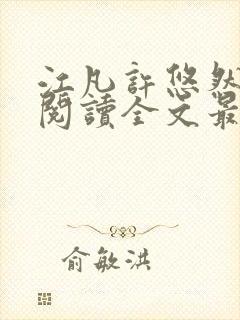 江凡許悠然
閱讀全文最
俞敏洪